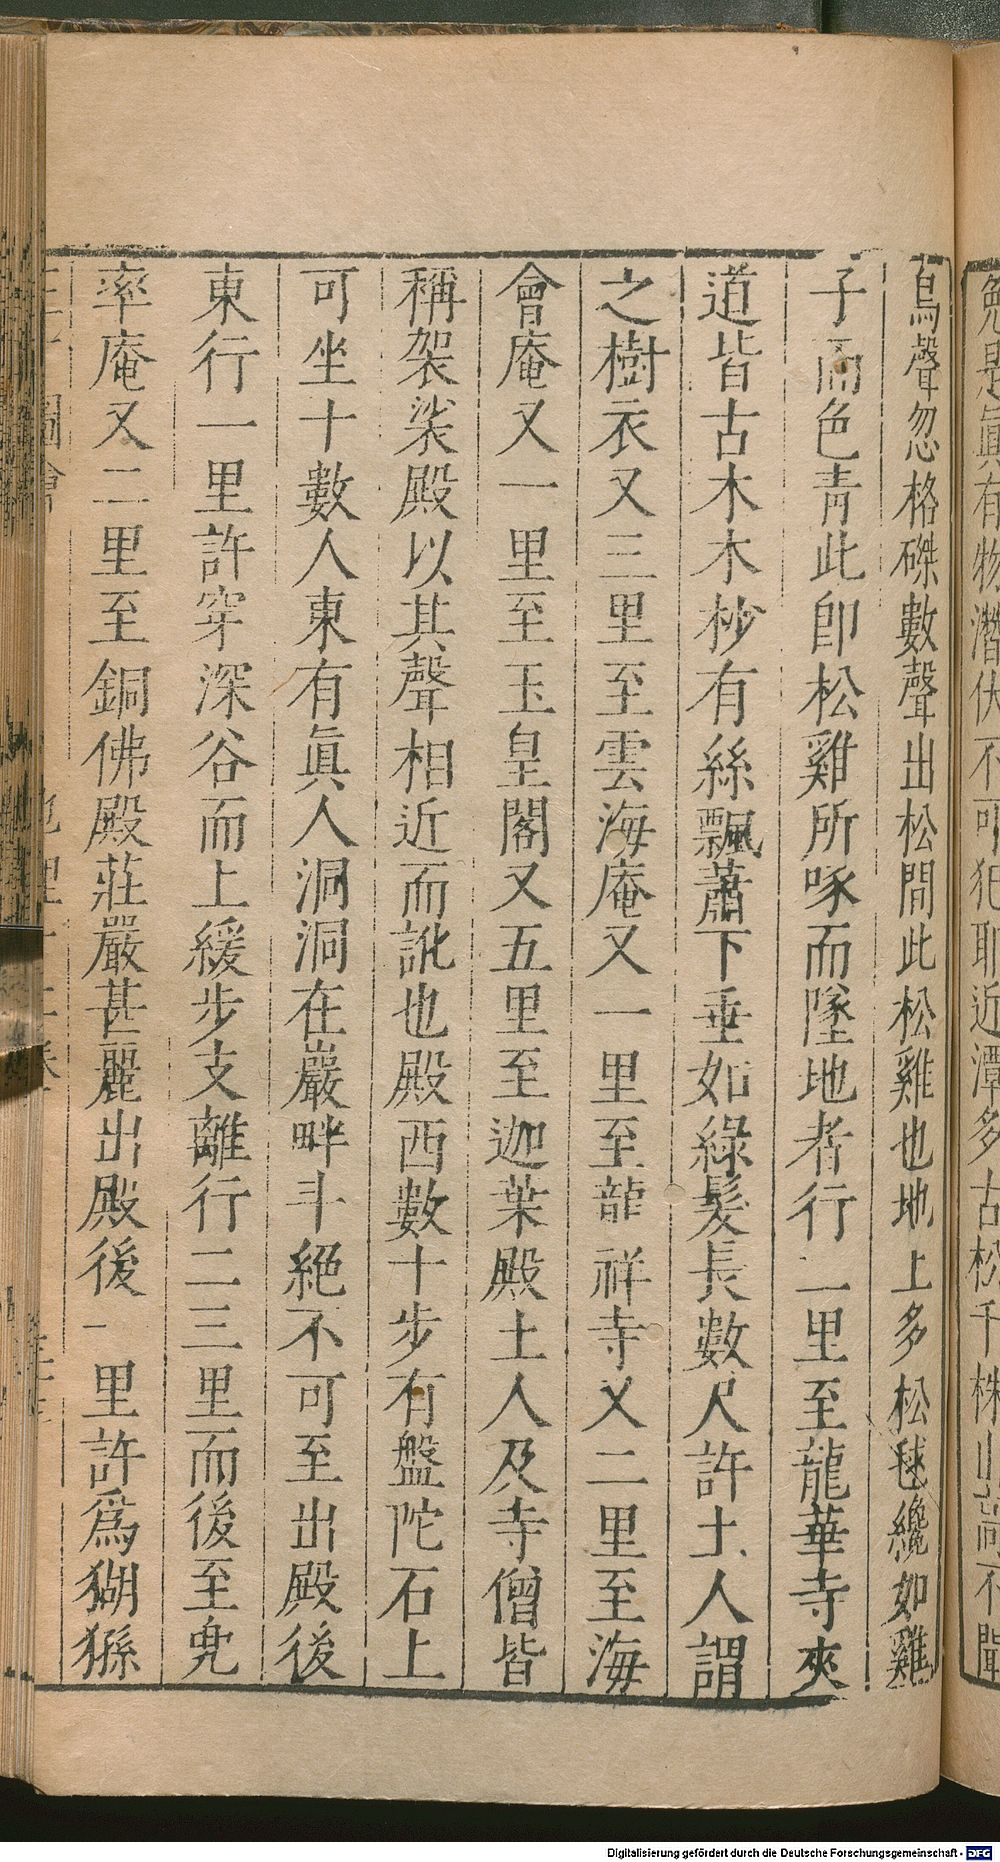 勉是眞有物潛伏不可犯耶近潭多古松千株山
不聞
鳥聲忽格磔數聲出松間此松雞也地上多松毬纔如雞
子而色青此卽松雞所啄而墜地者行一里至龍華寺夾
道皆古木木杪有絲飄蕭下垂如綠髮長數尺許土人謂
之樹衣又三里至雲海庵又一里至龍祥寺又二里至海
會庵又一里至玉皇閣又五里至迦葉殿土人及寺僧皆
稱袈裟殿以其聲相近而訛也殿西數十步有盤陀石上
可坐十數人東有眞人洞洞在巖畔斗絕不可至出殿後
東行一里許穿深谷而上緩步支離行二三里而後至兠
率庵又二里至銅佛殿莊嚴甚麗出殿後一里許爲猢猻
圖會
Digitalisierung gefördert durch die Deutsche Forschungsgemeinschaft - DFG